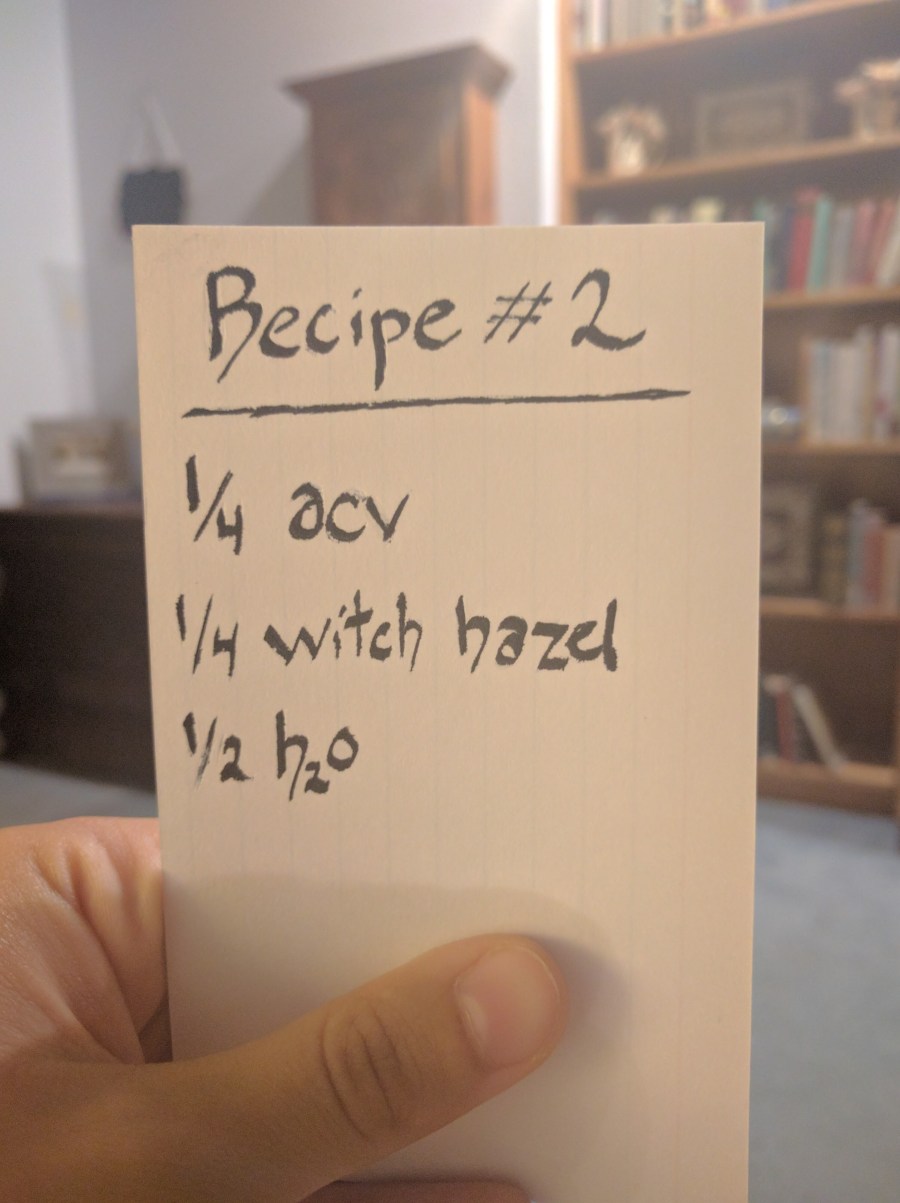 Recipe #2
1/4 acv
1/4 witch hazel
1/2 h₂o